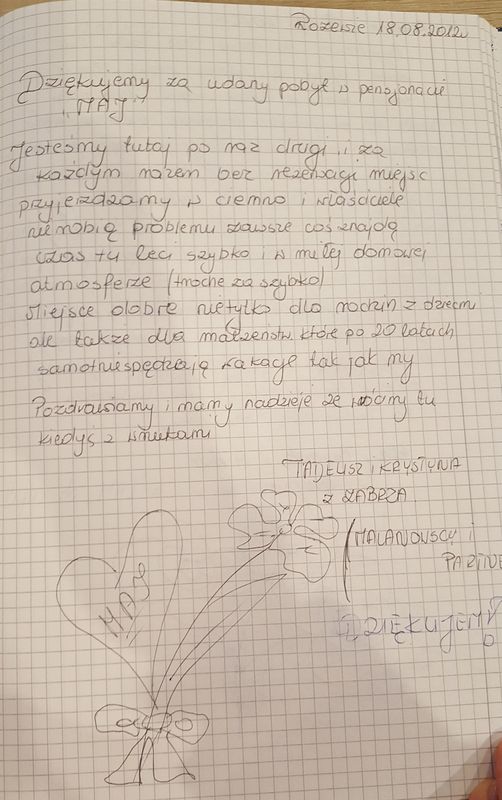 Rozewie 18.08.2012
Dziękujemy za udany pobyt w pensjonacie
"MAJ"
Jesteśmy tutaj po raz drugi, i za
każdym razem bez rezerwacji miejsc
przyjeżdżamy w ciemno i właściciele
nie robią problemu zawsze coś znajdą
czas tu leci szybko i w miłej domowej
atmosferze (troche za szybko)
Miejsce dobre nie tylko dla rodzin z dziećmi
ale także dla małżeństw. które po 20 latach
samotnie spędzają wakacje tak jak my
Pozdrawiamy i mamy nadzieje że wrócimy tu
kiedyś z wnukami
TADEUSZ i KRYSTYNA
z ZABRZA
MALANOWSCY i
MAJ
DZIĘKUJEMY